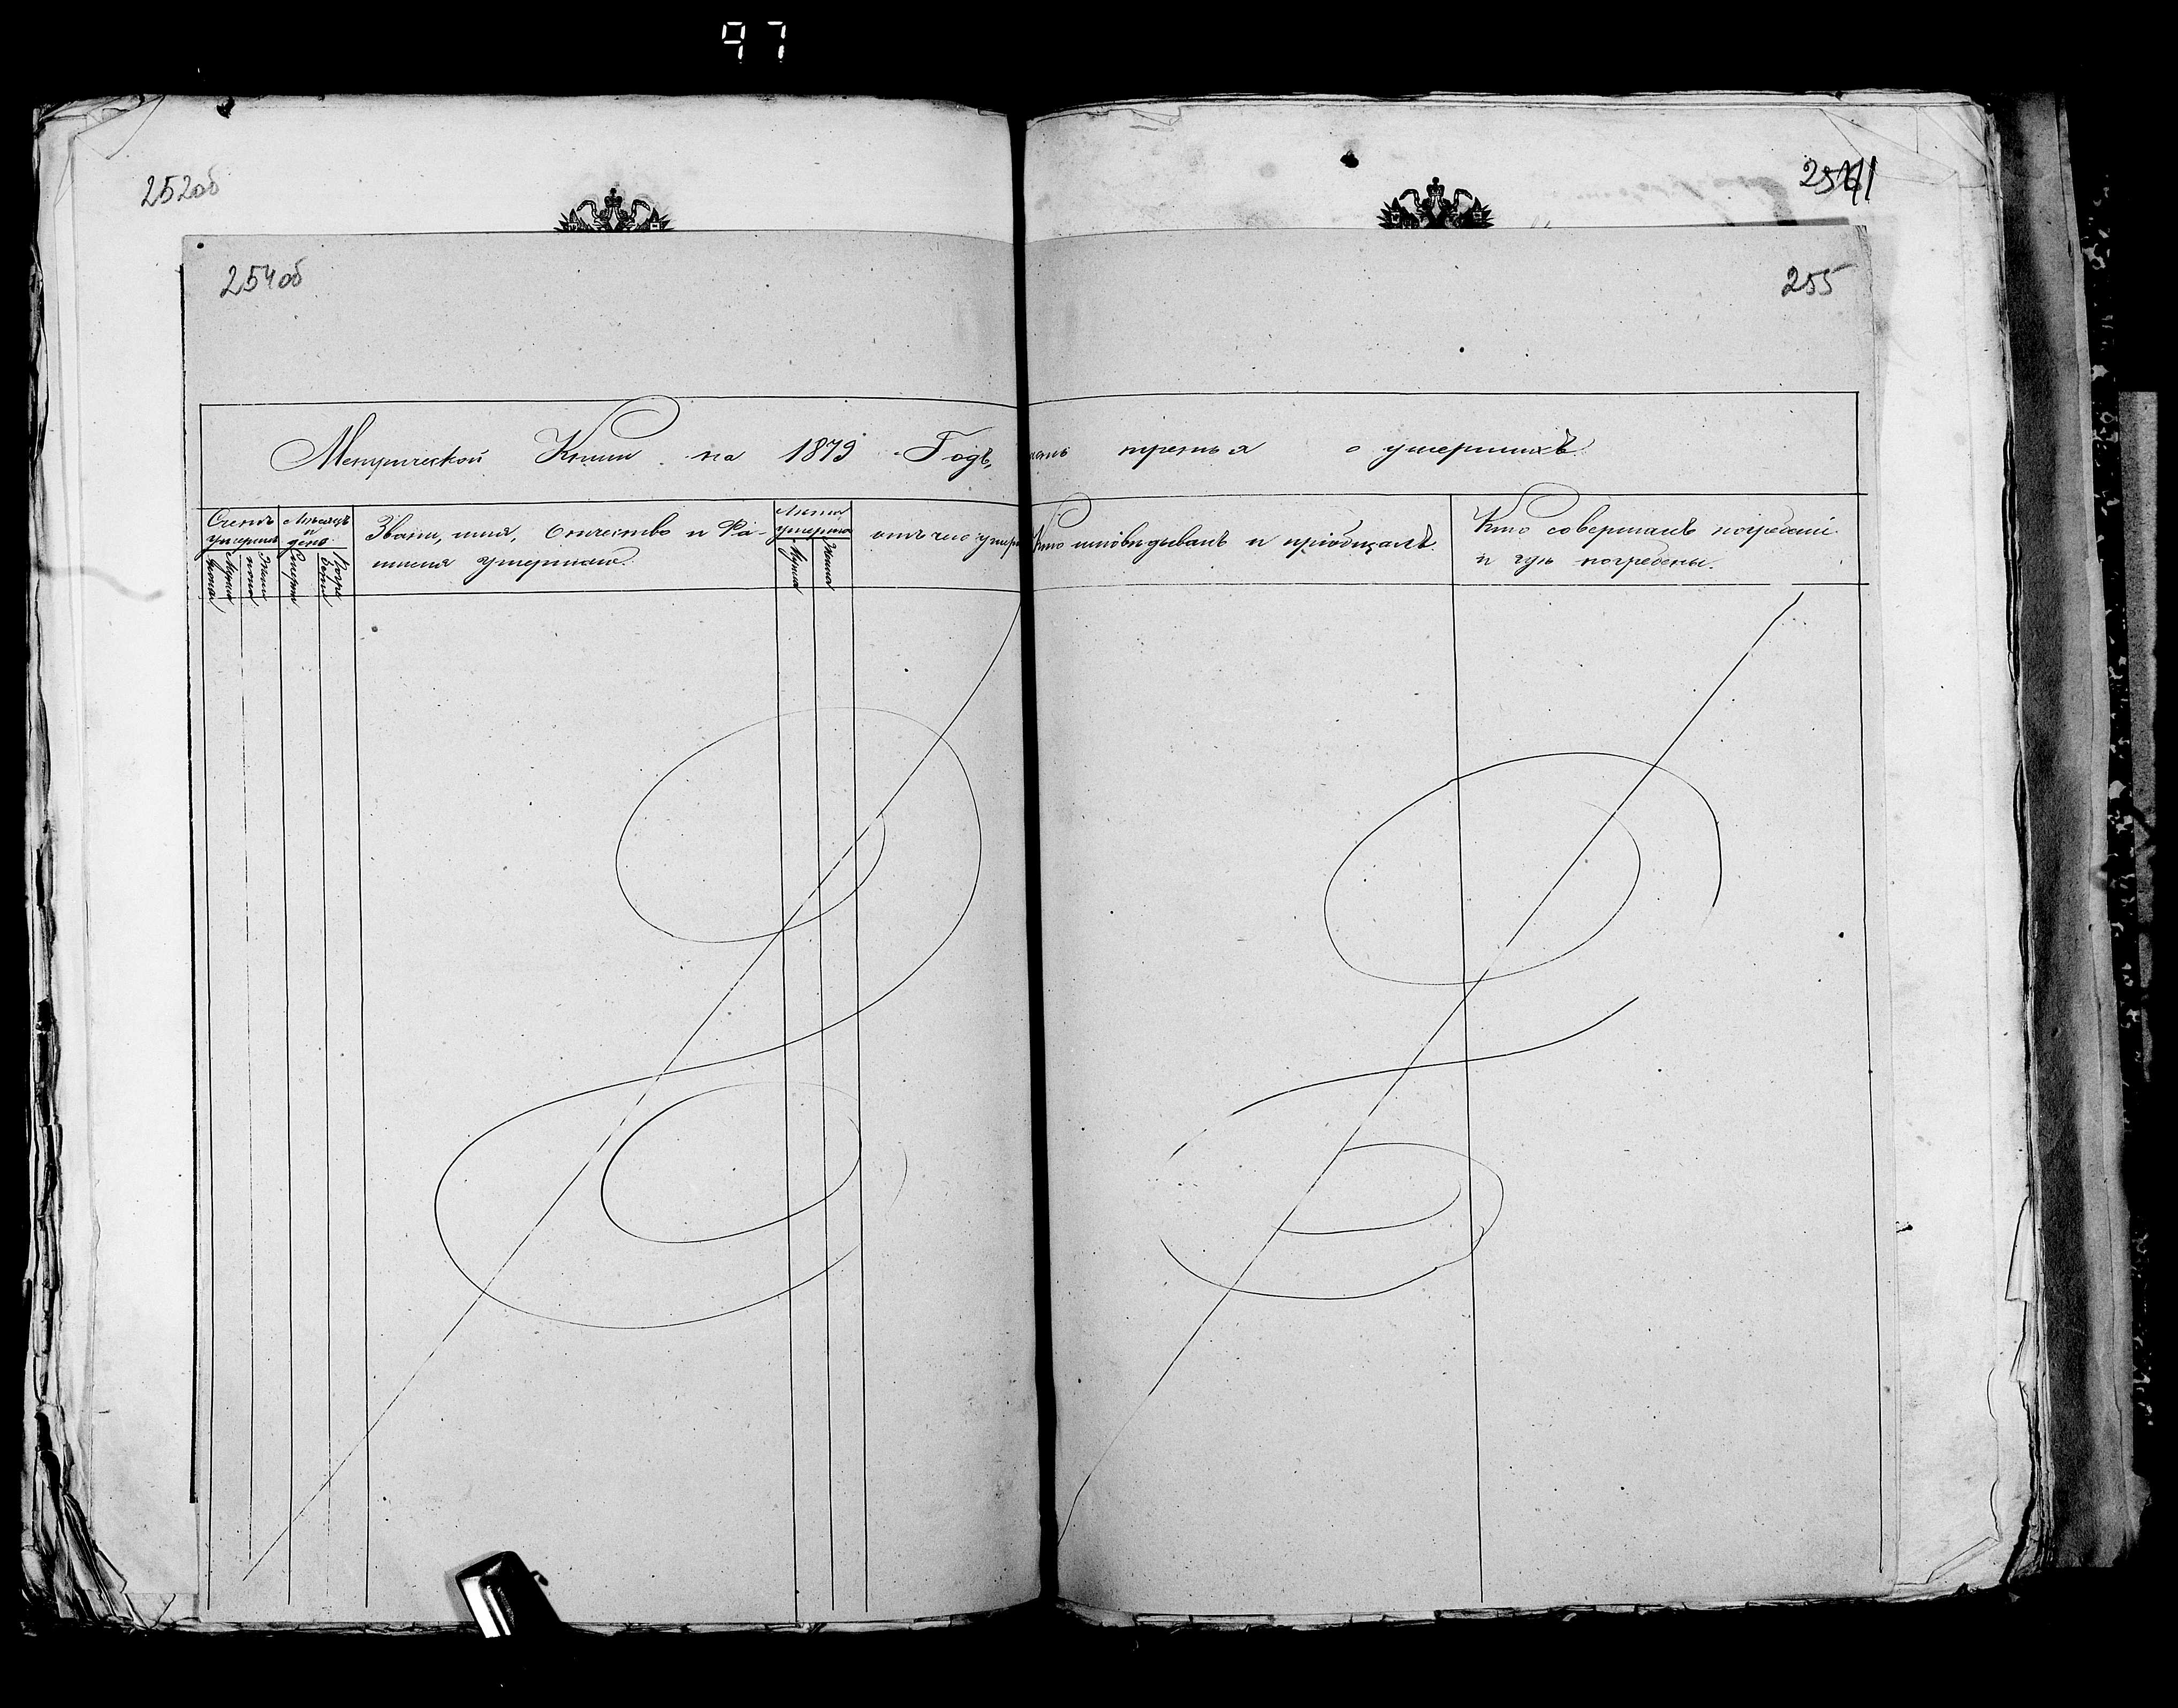 97
252об
254об
255
Метрической Книги на 1879 Годъ, часть третья о умершихъ.
Счетъ умершихъ
Мужеска
Женска
Мѣсяцъ и день
Смерти
Погребенія
Званіе, имя, отчество и Фа-
милія умершаго.
Лѣта умершаго
Мужска
Женска
отъ чего умеръ
Кто исповѣдывалъ и пріобщалъ.
Кто совершалъ погребеніе
и гдѣ погребены.